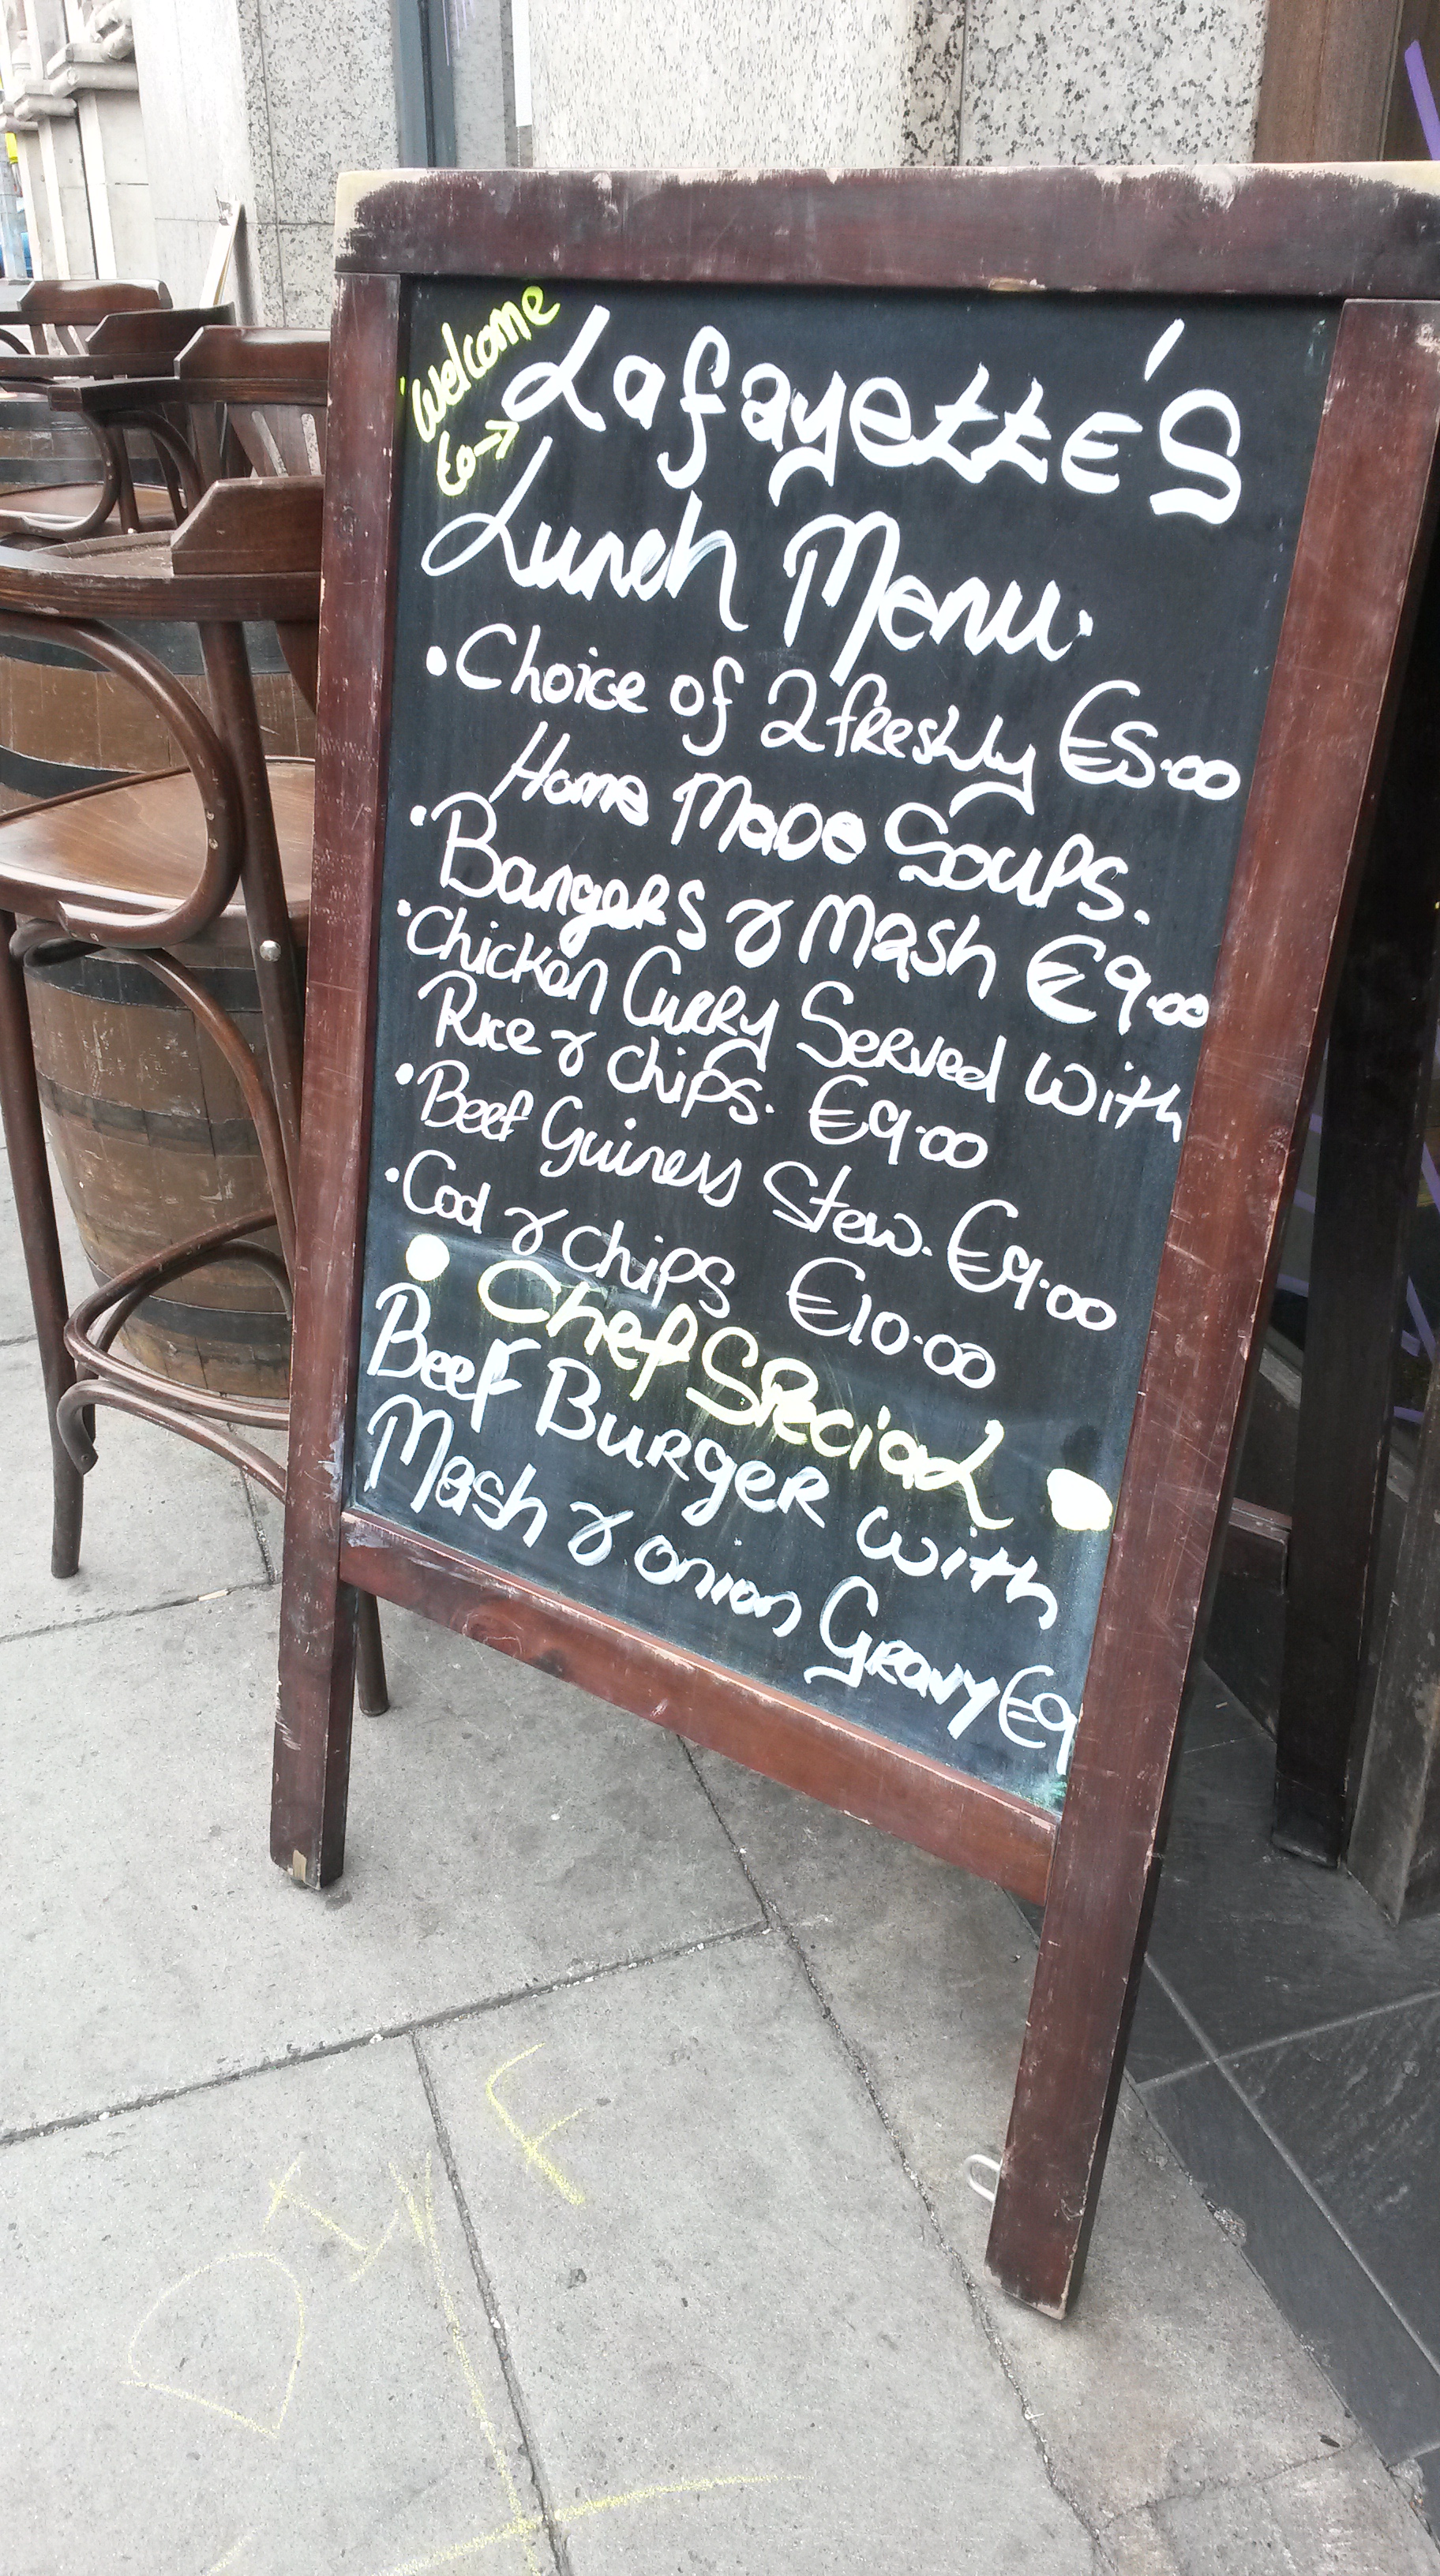 Welcome
to→
Lafayette's
Lunch Menu.
• Choice of 2 freshly €5.00
Home Made Soups.
• Bangers & Mash €9.00
• Chicken Curry Served with
Rice & chips. €9.00
• Beef Guiness Stew. €9.00
• Cod & chips €10.00
• Chef Special •
Beef Burger with
Mash & onion Gravy €9